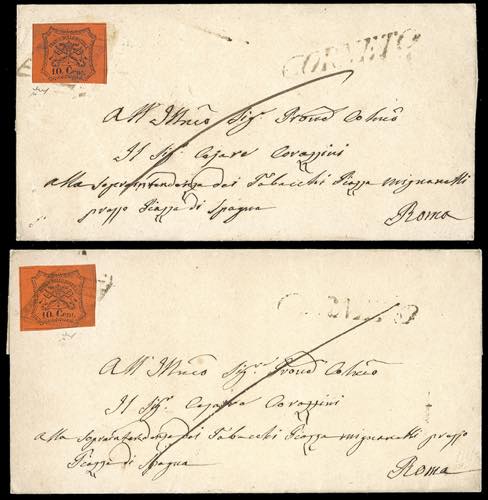 10 Cent.
CORNETO
All' Illmo Sigr. Proned Colmo
Il Sigr. Cesare Corazzini
alla Soprintendenza dei Tabacchi Piazza Mignanelli
presso Piazza di Spagna
Roma
10 Cent.
CORNETO
All' Illmo Sigr. Proned Colmo
Il Sigr. Cesare Corazzini
alla Soprintendenza dei Tabacchi Piazza Mignanelli presso
Piazza di Spagna
Roma